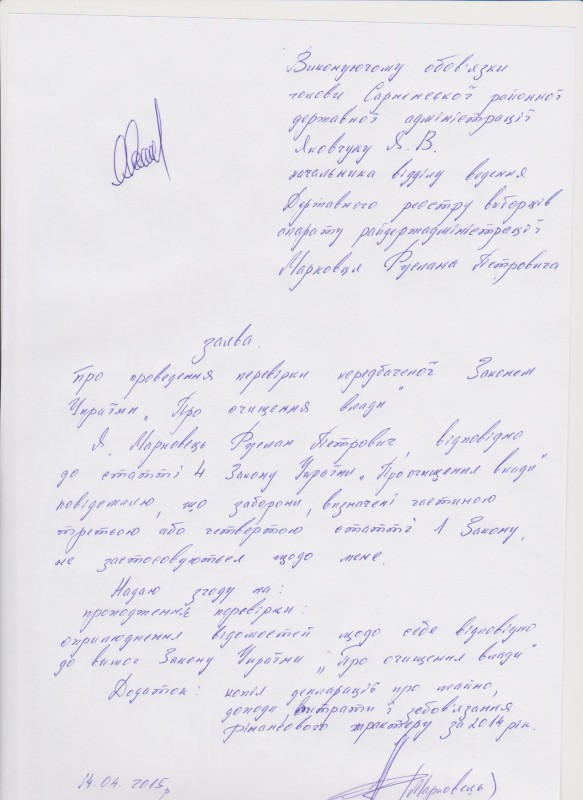 Виконуючому обов'язки
голови Сарненської районної
державної адміністрації
Яковчуку Я. В.
начальника відділу ведення
Державного реєстру виборців
апарату райдержадміністрації
Марковця Руслана Петровича
заява.
про проведення перевірки передбаченої Законом
України „Про очищення влади"
Я, Марковець Руслан Петрович, відповідно
до статті 4 Закону України „Про очищення влади"
повідомляю, що заборони, визначені частиною
третьою або четвертою статті 1 Закону,
не застосовуються щодо мене.
Надаю згоду на:
проходження перевірки:
оприлюднення відомостей щодо себе відповідно
до вимог Закону України „Про очищення влади"
Додаток: копія декларації про майно,
доходи, витрати і зобов'язання
фінансового характеру за 2014 рік.
14.04.2015р
(Марковець)